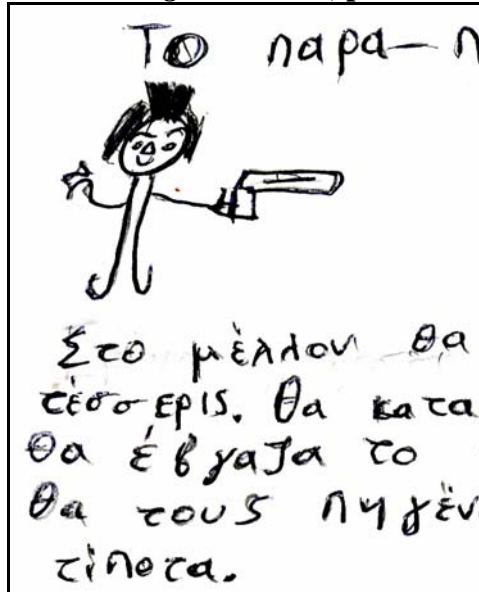 Το παρα— π
Στο μέλλον θα
τέσσερις. θα κατα
θα έβγαζα το
θα τους πηγέν
τίποτα.